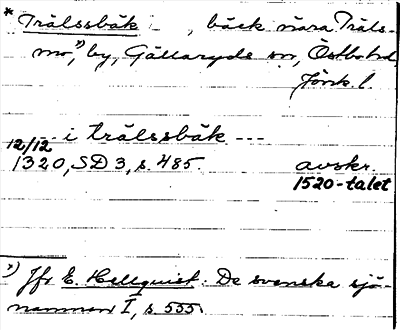 * Trälssbäk, bäck nära Träls-
mo,*) by, Gällaryds sn, Östbo hd,
Jönk. l.
--- i trälssbäk ---
12/12
1320, SD 3, s. 485. avskr.
1520-talet
*) Jfr E. Hellquist. De svenska sjö-
namnen I, s. 555.